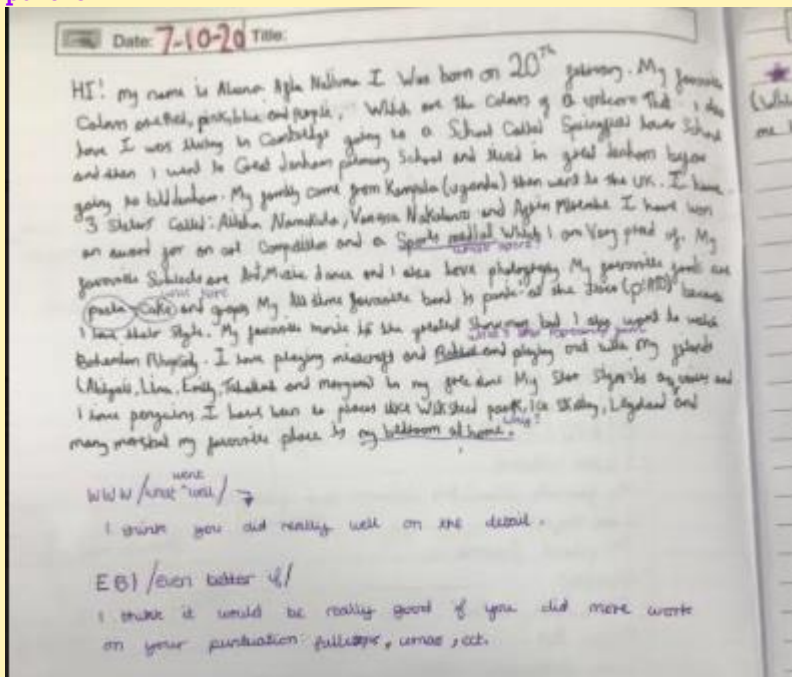 Date: 7-10-20 Title:
HI! my name is I was born on 20TH february. My favourite
Colours are Red, pink, blue and purple. Which are the Colours of a unicorn That I also
love I was living in Cambridge going to a School Called Lower School
and then I went to Great denham primary School and lived in great denham before
going to biddenham. My family come from Kampala (uganda) then went to the UK. I have
3 Sisters Called: and I have won
an award for an art Competition and a Sports medial Which I am Very proud of. My
what sport?
favourite Subjects are Art, Music dance and I also love photography My favourite foods are
pasta, Cake and grapes My All time favourite band is panic! at the disco (P!ATD) because
I love their Style. My favourite movie is the greatest Showman but I also want to watch
Bohemian Rhapsody. I love playing minecraft and Roblox and playing out with my friends
(Abigail, Lina, Emily, and morgan) in my free time My Star Sign is aquarius and
I love penguins I have been to places like Wicksteed park, Ice Skating, Legoland and
many more but my favourite place is my bedroom at home.
why?
WWW /what went well/
I think you did really well on the detail.
EBI /even better if/
I think it would be really good if you did more work
on your puntuation: fullstops, comas, ect.
(Whi
me